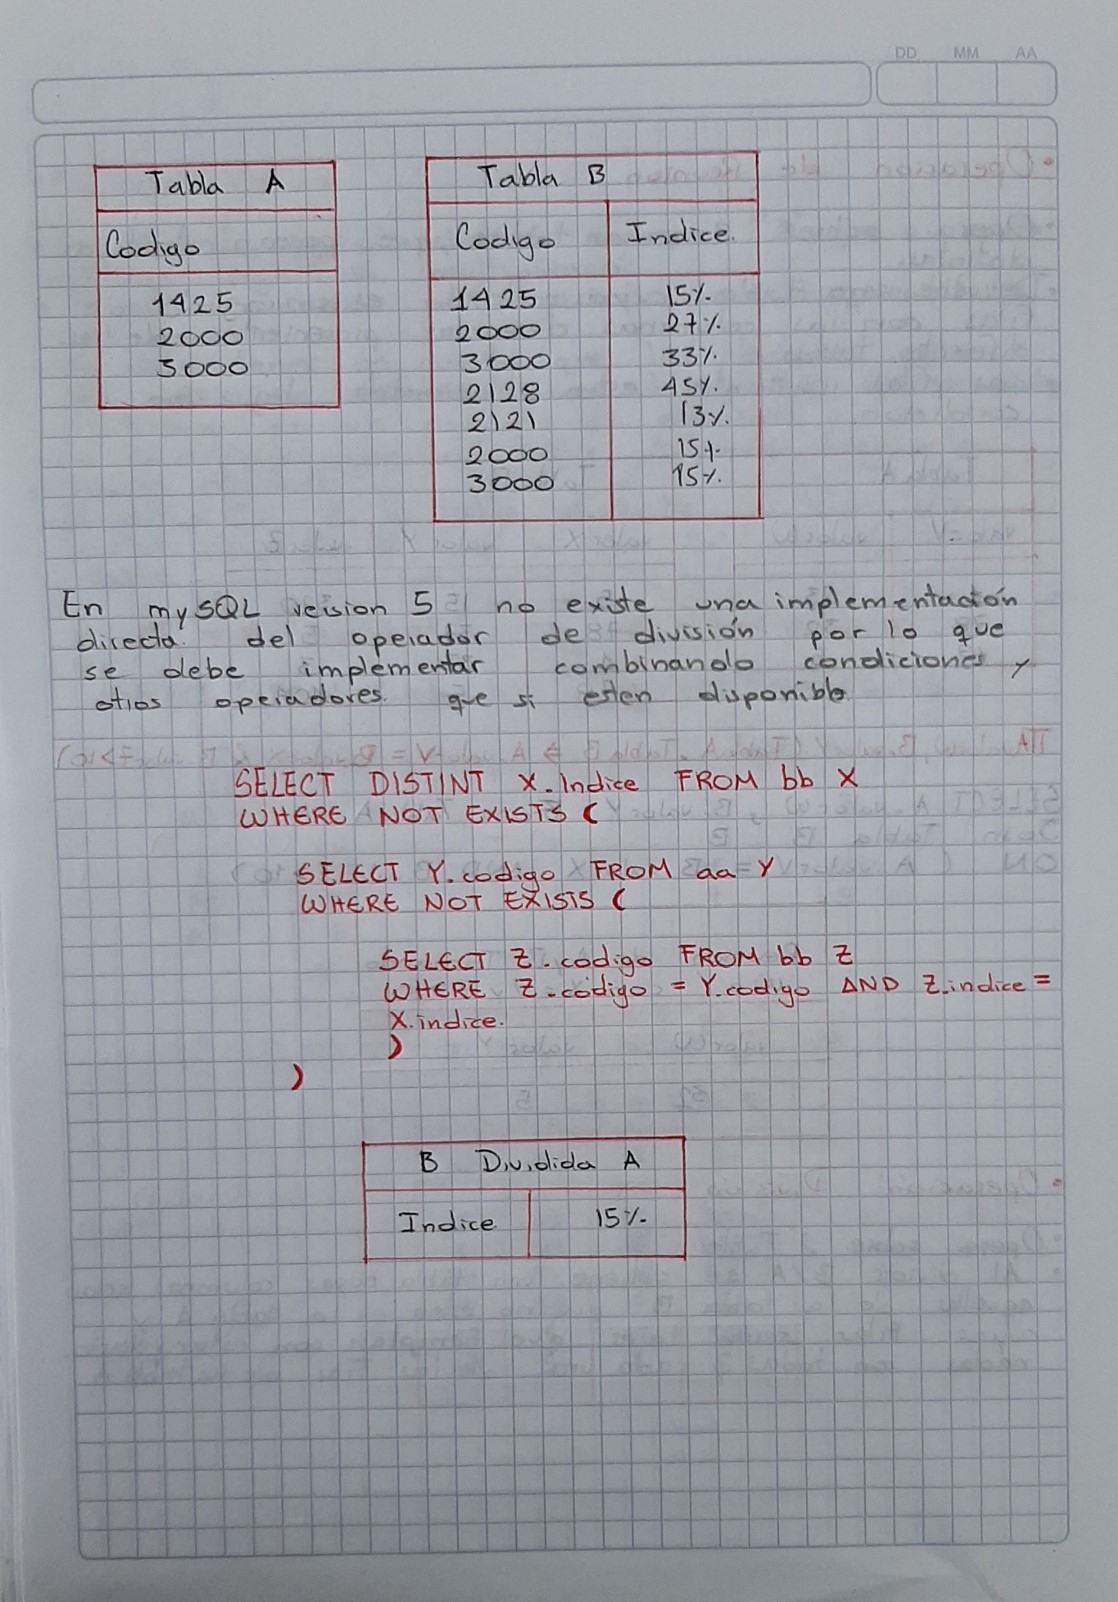 DD MM AA
Tabla A
Codigo
1425
2000
3000
Tabla B
Codigo Indice.
1425 15%
2000 27%
3000 33%
2128 45%
2121 13%
2000 15%
3000 15%
En mySQL version 5 no existe una implementación
directa. del operador de división por lo que
se debe implementar combinando condiciones y
otros operadores. que si esten disponible
SELECT DISTINT X.Indice FROM bb X
WHERE NOT EXISTS (
SELECT Y.codigo FROM aa Y
WHERE NOT EXISTS (
SELECT Z.codigo FROM bb Z
WHERE Z.codigo = Y.codigo AND Z.indice =
X.indice.
)
)
B Dividida A
Indice 15%